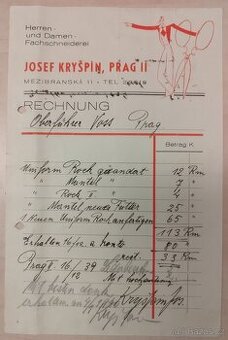 Herren-
und Damen-
Fachschneiderei
JOSEF KRYŠPÍN, PRAG II
MEZIBRANSKÁ 11 • TEL.
RECHNUNG
Oberführer Voss Prag
Betrag K
Uniform Rock geändert 12 Rm
" Mantel 7 "
" Rock 4 "
" Mantel, neues Futter 25 "
1 Neuen Uniform Rock anfertigen 65 "
113 Rm
Erhalten 16/12 a konto 80 "
rest. 33 Rm
Prag II 16/12 39
Mit bestem Dank
erhalten